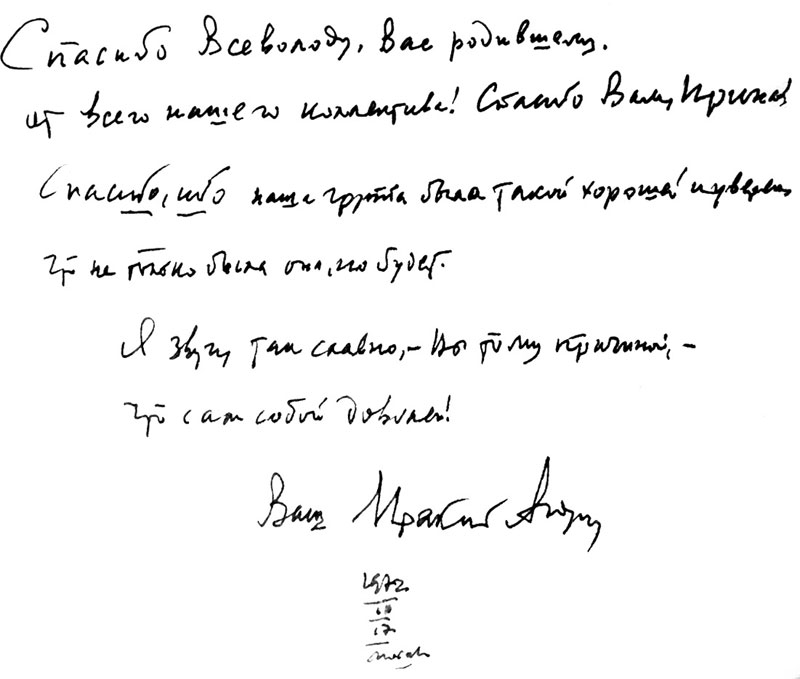 Спасибо Всеволоду, Вас родившему.
от всего нашего коллектива! Спасибо Вам, Ирина
Спасибо, ибо наша группа была такой хорошей
что не только была она, но будет.
Я звучу так славно, – Вы тому причиной, –
что сам собой доволен!
Ваш Ираклий Андр
1972
III
17